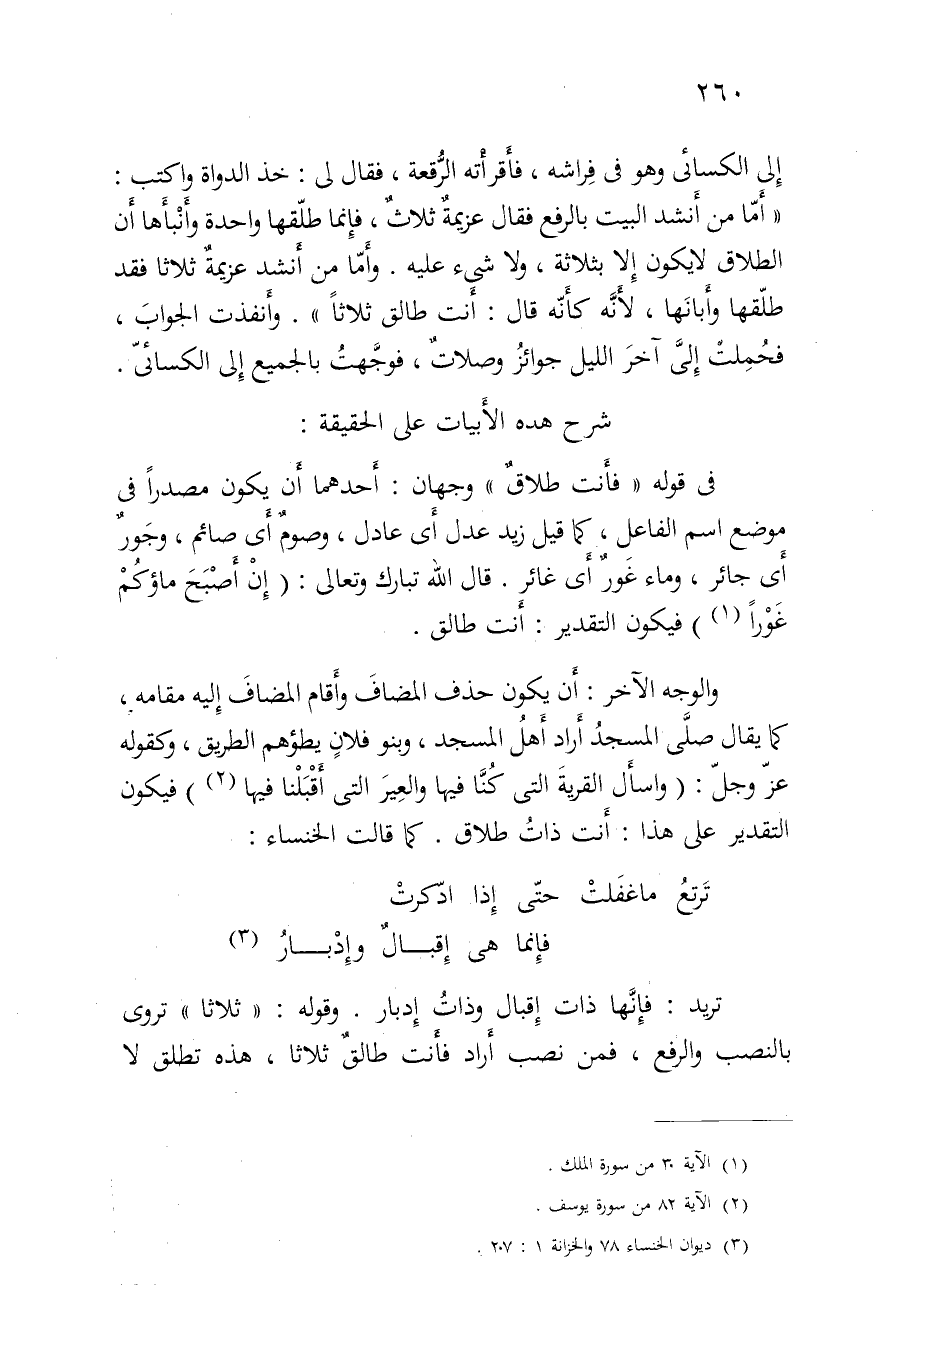 ٢٦٠
إلى الكسائى وهو فى فِراشه ، فأقرأته الرُّقعة ، فقال لى : خذ الدواة واكتب :
« أمّا من أنشد البيت بالرفع فقال عزيمةٌ ثلاثٌ ، فإنما طلّقها واحدة وأنْبأها أن
الطلاق لايكون إلا بثلاثة ، ولا شىء عليه . وأمّا من أنشد عزيمةٌ ثلاثا فقد
طلّقها وأبانَها ، لأنَّه كأنّه قال : أنت طالق ثلاثاً » . وأنفذت الجوابَ ،
فحُمِلتْ إلىَّ آخرَ الليل جوائزُ وصلاتٌ ، فوجَّهتُ بالجميع إلى الكسائىّ .
شرح هده الأبيات على الحقيقة :
فى قوله « فأنت طلاقٌ » وجهان : أحدهما أن يكون مصدراً فى
موضع اسم الفاعل ، كما قيل زيد عدل أى عادل ، وصومٌ أى صائم ، وجَورٌ
أى جائر ، وماء غَورٌ أى غائر . قال الله تبارك وتعالى : ( إنْ أصْبَحَ ماؤكُمْ
غَوْراً (١) ) فيكون التقدير : أنت طالق .
والوجه الآخر : أن يكون حذف المضافَ وأقام المضافَ إليه مقامه ،
كما يقال صلَّى المسجدُ أراد أهلُ المسجد ، وبنو فلانٍ يطؤهم الطريق ، وكقوله
عزّ وجلّ : ( واسأل القريةَ التى كُنَّا فيها والعِيرَ التى أقْبَلْنا فيها (٢) ) فيكون
التقدير على هذا : أنت ذاتُ طلاق . كما قالت الخنساء :
تَرتعُ ماغفَلتْ حتّى إذا ادّكرتْ
فإنما هى إقبـــالٌ وإدْبـــارُ (٣)
تريد : فإنَّها ذات إقبال وذاتُ إدبار . وقوله : « ثلاثا » تروى
بالنصب والرفع ، فمن نصب أراد فأنت طالقٌ ثلاثا ، هذه تطلق لا
(١) الآية ٣٠ من سورة الملك .
(٢) الآية ٨٢ من سورة يوسف .
(٣) ديوان الخنساء ٧٨ والخزانة ١ : ٢٠٧ .